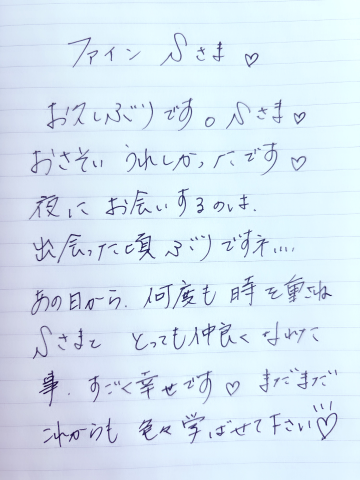 ファイン Sさま♡
お久しぶりです。Sさま♡
おさそい うれしかったです♡
夜に お会いするのは、
出会った頃ぶりですネ...
あの日から、何度も 時を重さね
Sさまと とっても仲良く なれた
事、すごく幸せです♡ まだまだ
これからも 色々学ばせて下さい♡